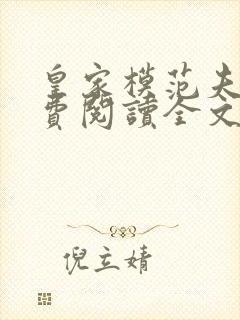 皇家模范夫
費閱讀全文
倪立婧